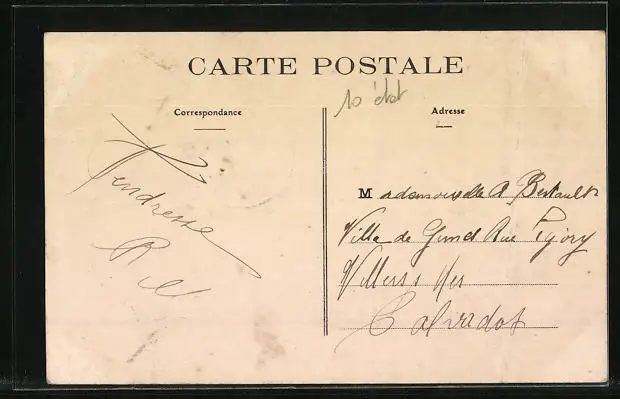 CARTE POSTALE
10 état
Correspondance
Adresse
Tendresse
Mademoiselle A Bertault
Villa de Rue
Villers s Mer
Calvados